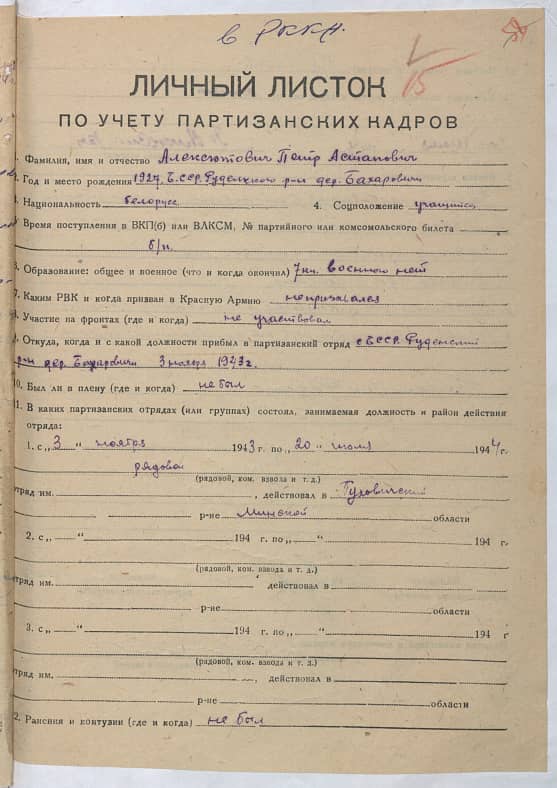 в РККА.
15
ЛИЧНЫЙ ЛИСТОК
ПО УЧЕТУ ПАРТИЗАНСКИХ КАДРОВ
1. Фамилия, имя и отчество Алексютович Петр Астапович
2. Год и место рождения 1927. БССР. Руденского р-на дер. Бахаровичи
3. Национальность белорусс 4. Соцположение учащийся
5. Время поступления в ВКП(б) или ВЛКСМ, № партийного или комсомольского билета
б/п.
6. Образование: общее и военное (что и когда окончил) 7 кл. военного нет
7. Каким РВК и когда призван в Красную Армию непризывался
8. Участие на фронтах (где и когда) не участвовал
9. Откуда, когда и с какой должности прибыл в партизанский отряд с БССР. Руденский
р-н дер. Бахаровичи 3 ноября 1943 г.
10. Был ли в плену (где и когда) не был
11. В каких партизанских отрядах (или группах) состоял, занимаемая должность и район действия
отряда:
1. с „3 “ ноября 1943 г. по „20 “ июля 1944 г.
рядовой
(рядовой, ком. взвода и т. д.)
отряд им. , действовал в
р-не Минской области
2. с „ “ 194 г. по „ “ 194 г.
(рядовой, ком. взвода и т. д.)
отряд им. , действовал в
р-не области
3. с „ “ 194 г. по „ “ 194 г.
(рядовой, ком. взвода и т. д.)
отряд им. , действовал в
р-не области
12. Ранения и контузии (где и когда) не был